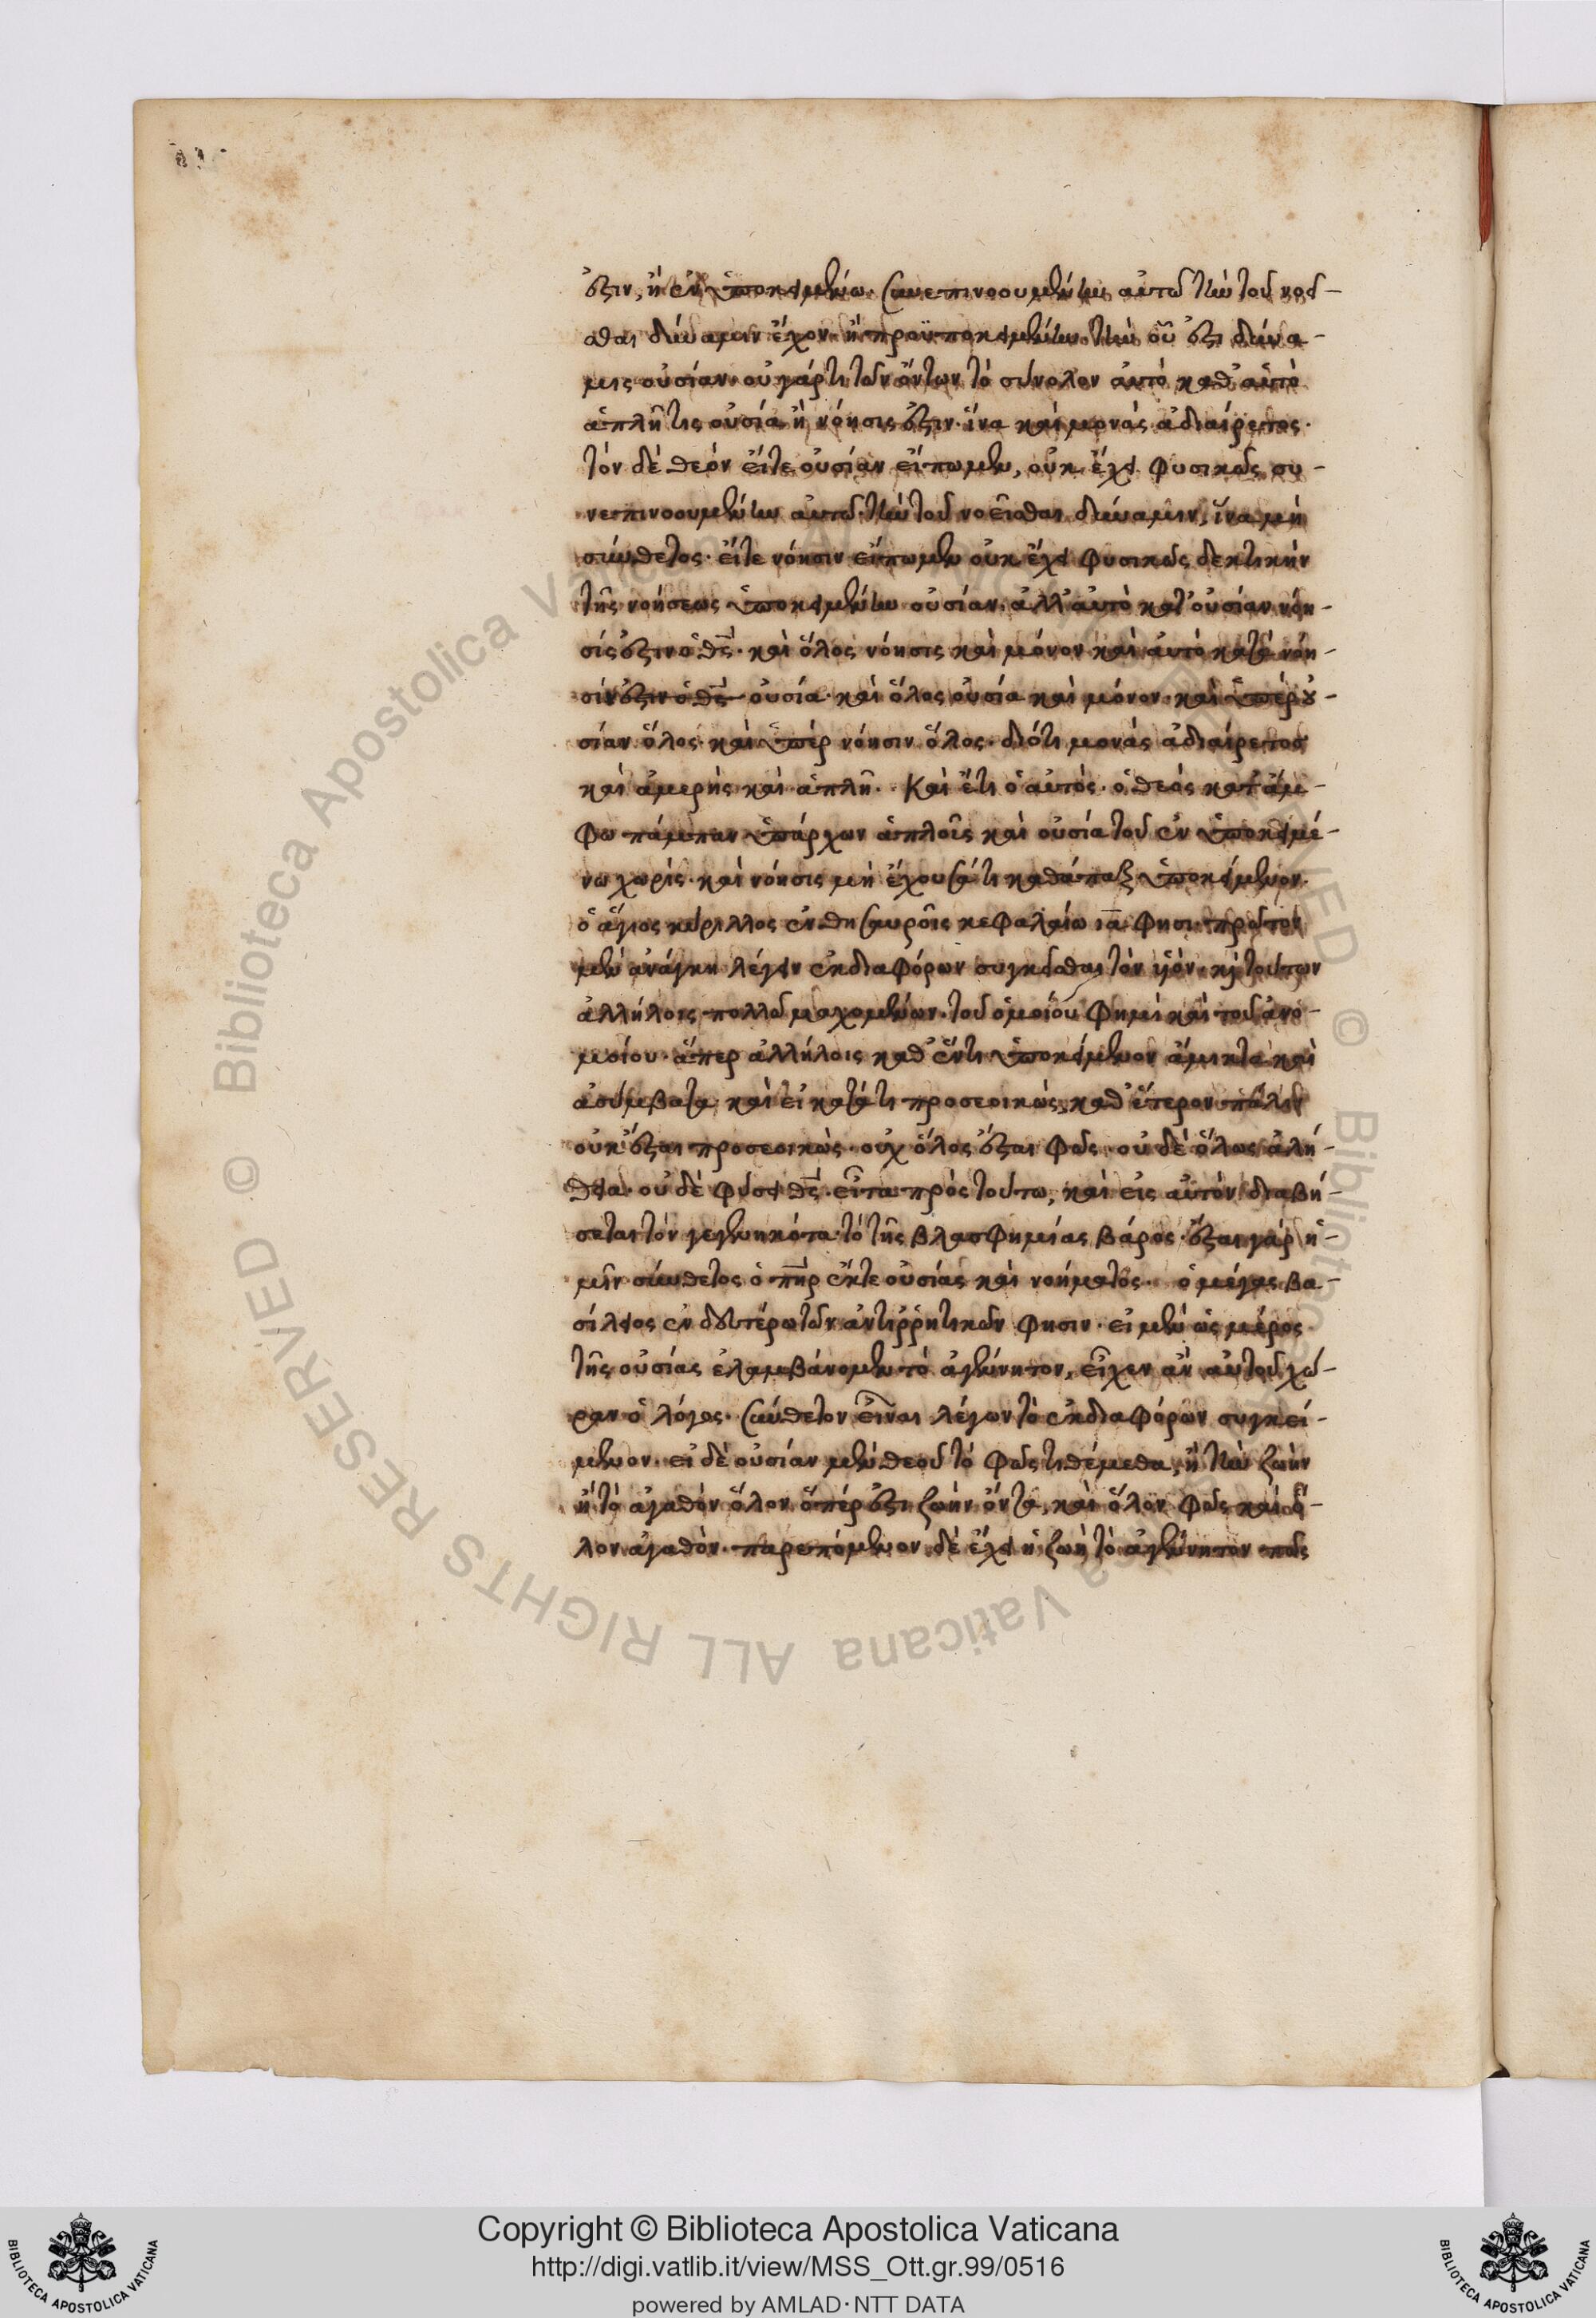 ἐστιν, ἢ ἐν ὑποκειμένω. συνεπινοουμένην αὐτῶ τὴν τοῦ νοεῖ-
σθαι δύναμιν ἔχον· ἢ προϋποκειμένην τὴν οὗ ἐστι δύνα-
μις οὐσίαν· οὐ γάρ τι τῶν ὄντων τὸ σύνολον αὐτὸ καθ' αὑτὸ
ἁπλῆ τις οὐσία ἢ νόησίς ἐστιν· ἵνα καὶ μονάς ἀδιαίρετος·
τὸν δὲ θεόν εἴτε οὐσίαν εἴπωμεν, οὐκ ἔχει φυσικῶς συ-
νεπινοουμένην αὐτῶ τὴν τοῦ νοεῖσθαι δύναμιν, ἵνα μὴ
σύνθετος· εἴτε νόησιν εἴπωμεν οὐκ ἔχει φυσικῶς δεκτικὴν
τῆς νοήσεως ὑποκειμένην οὐσίαν· ἀλλ' αὐτὸ κατ' οὐσίαν νόη-
σίς ἐστιν ὁ θς· καὶ ὅλος νόησις καὶ μόνον καὶ αὐτὸ κατὰ νόη-
σίν ἐστιν ὁ θς οὐσία· καὶ ὅλος οὐσία καὶ μόνον· καὶ ὑπὲρ οὐ-
σίαν ὅλος· καὶ ὑπὲρ νόησιν ὅλος· διότι μονάς ἀδιαίρετος
καὶ ἀμερὴς καὶ ἁπλῆ. Καὶ ἔτι ὁ αὐτός· ὁ θεὸς κατ' ἄμ-
φω πάμπαν ὑπάρχων ἁπλοῖς καὶ οὐσία τοῦ ἐν ὑποκειμέ-
νω χωρίς· καὶ νόησις μὴ ἔχουσά τι καθάπαξ ὑποκείμενον.
ὁ ἅγιος κύριλλος ἐν θησαυροῖς κεφαλαίω ια φησι· πρῶτον
μὲν ἀνάγκη λέγειν ἐκ διαφόρων συγκεῖσθαι τὸν υἱόν· κὶ τούτων
ἀλλήλοις πολλῶ μαχομένων. τοῦ ὁμοίου φημὶ καὶ τοῦ ἀνο-
μοίου· ἅπερ ἀλλήλοις καθ' ἕν τι ὑποκείμενον ἄμικτα καὶ
ἀσύμβατα· καὶ εἰ κατά τι προσεοικὼς, καθ' ἕτερον πάλιν
οὐκ ἔσται προσεοικὼς· οὐχ ὅλος ἔσται φῶς· οὐ δὲ ὅλως ἀλή-
θεια· οὐ δὲ φύσει θς· εἶτα πρὸς τούτω, καὶ εἰς αὐτὸν διαβή-
σεται τὸν γεγεννηκότα τὸ τῆς βλασφημίας βάρος· ἔσται γὰρ ἡ-
μῖν σύνθετος ὁ πηρ ἔκ τε οὐσίας καὶ νοήματος. ὁ μέγας βα-
σίλειος ἐν δευτέρω τῶν ἀντιῤῥητικῶν φησιν· εἰ μὲν ὡς μέρος
τῆς οὐσίας ἐλαμβάνομεν τὸ ἀγέννητον, εἶχεν ἂν αὐτοῦ χώ-
ραν ὁ λόγος· σύνθετον εἶναι λέγων τὸ ἐκ διαφόρων συγκεί-
μενον. εἰ δὲ οὐσίαν μὲν θεοῦ τὸ φῶς τιθέμεθα, ἢ τὴν ζωὴν
ἢ τὸ ἀγαθὸν ὅλον ὅπερ ἐστι ζωὴν ὄντα, καὶ ὅλον φῶς καὶ ὅ-
λον ἀγαθόν· παρεπόμενον δὲ ἔχει ἡ ζωὴ τὸ ἀγέννητον πῶς
Copyright © Biblioteca Apostolica Vaticana
http://digi.vatlib.it/view/MSS_Ott.gr.99/0516
powered by AMLAD·NTT DATA